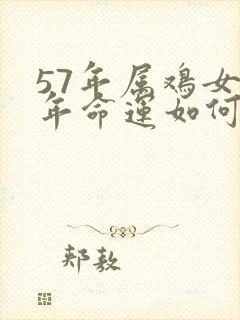 57年属鸡女
年命运如何
郏敖